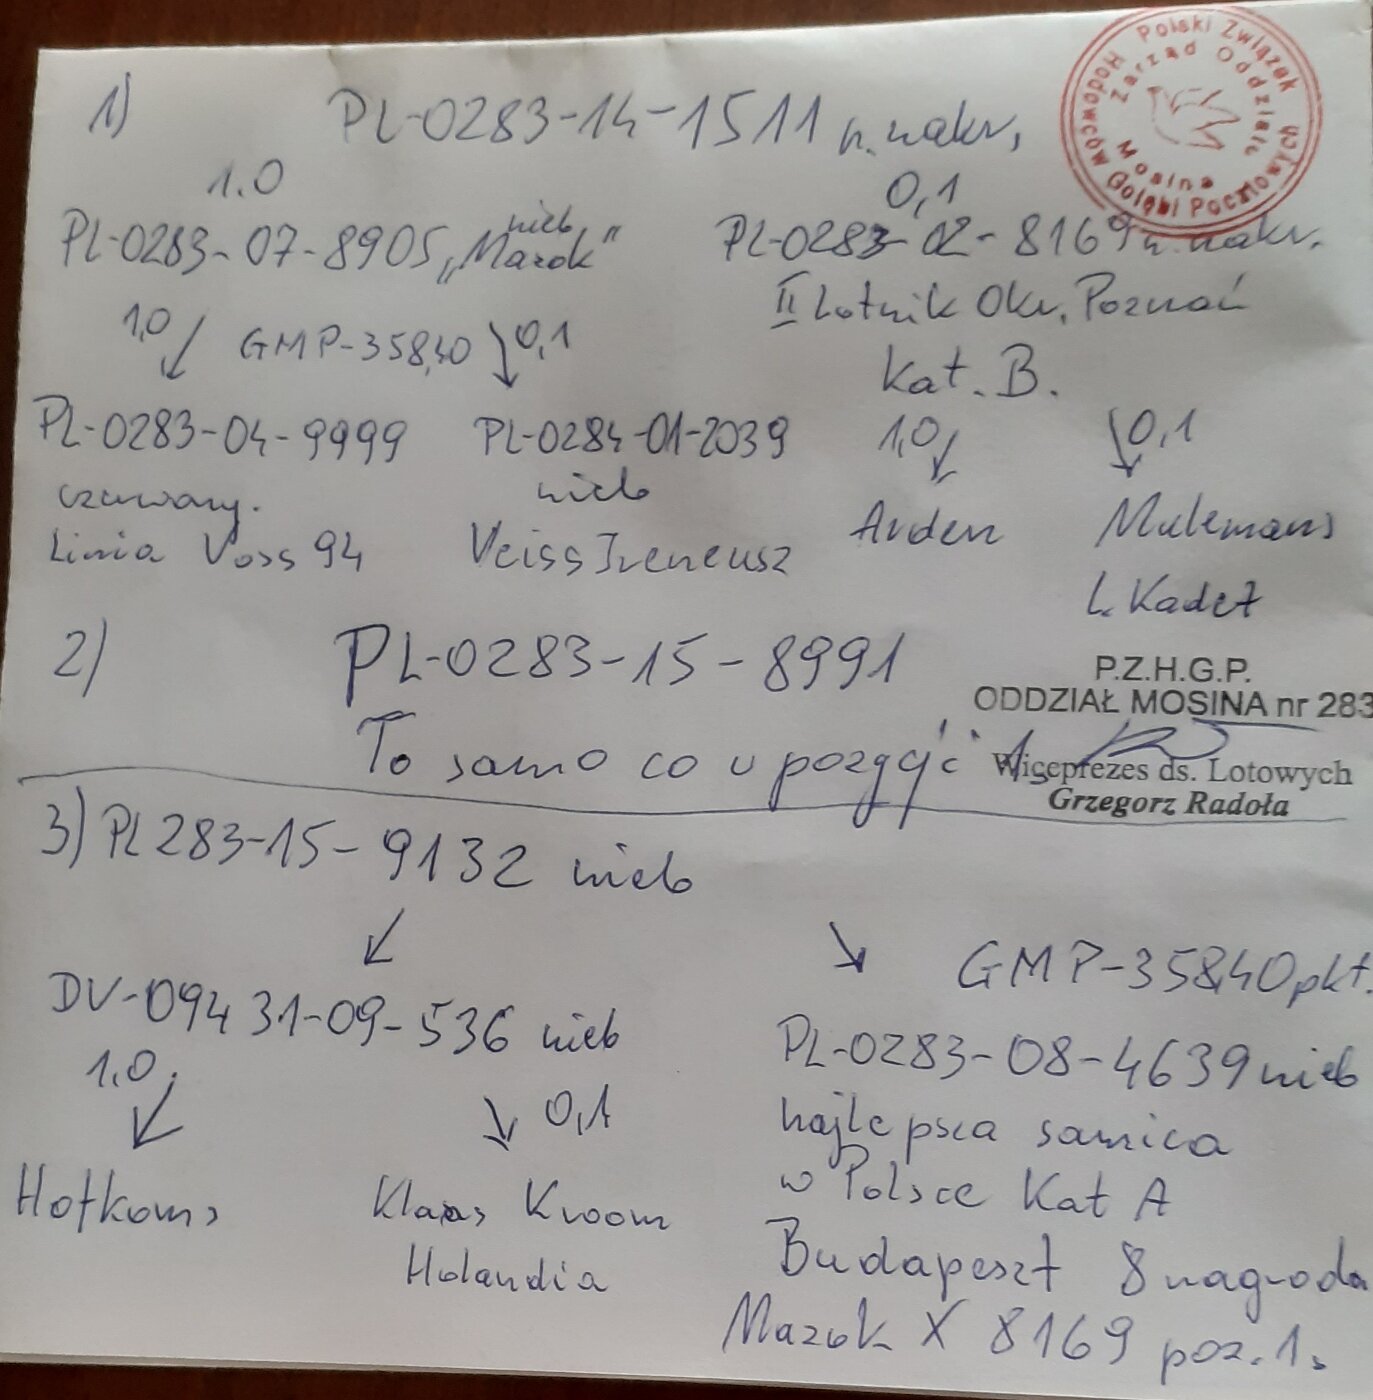 1)
PL-0283-14-1511 n. nakr,
Polski Związek Hodowców Gołębi Pocztowych
Zarząd Oddziału
Mosina
1.0
0,1
PL-0283-07-8905 nieb „Mazok"
PL-0283-02-8169 n. nakr.
II Lotnik Okr. Poznań
Kat. B.
1,0 GMP-358,40 0,1
PL-0283-04-9999
czerwony.
Linia Voss 94
PL-0284-01-2039
nieb
Veiss Ireneusz
1,0
0,1
Arden
Mulemans
L. Kadet
2) PL-0283-15-8991
To samo co w pozycji 1
P.Z.H.G.P.
ODDZIAŁ MOSINA nr 283
Wiceprezes ds. Lotowych
Grzegorz Radoła
3) PL 283-15-9132 nieb
DV-09431-09-536 nieb
1,0
0,1
Hofkens
Klaas Kroom
Holandia
GMP-358,40 pkt.
PL-0283-08-4639 nieb
najlepsza samica
w Polsce Kat A
Budapeszt 8 nagroda
Mazok X 8169 poz. 1.